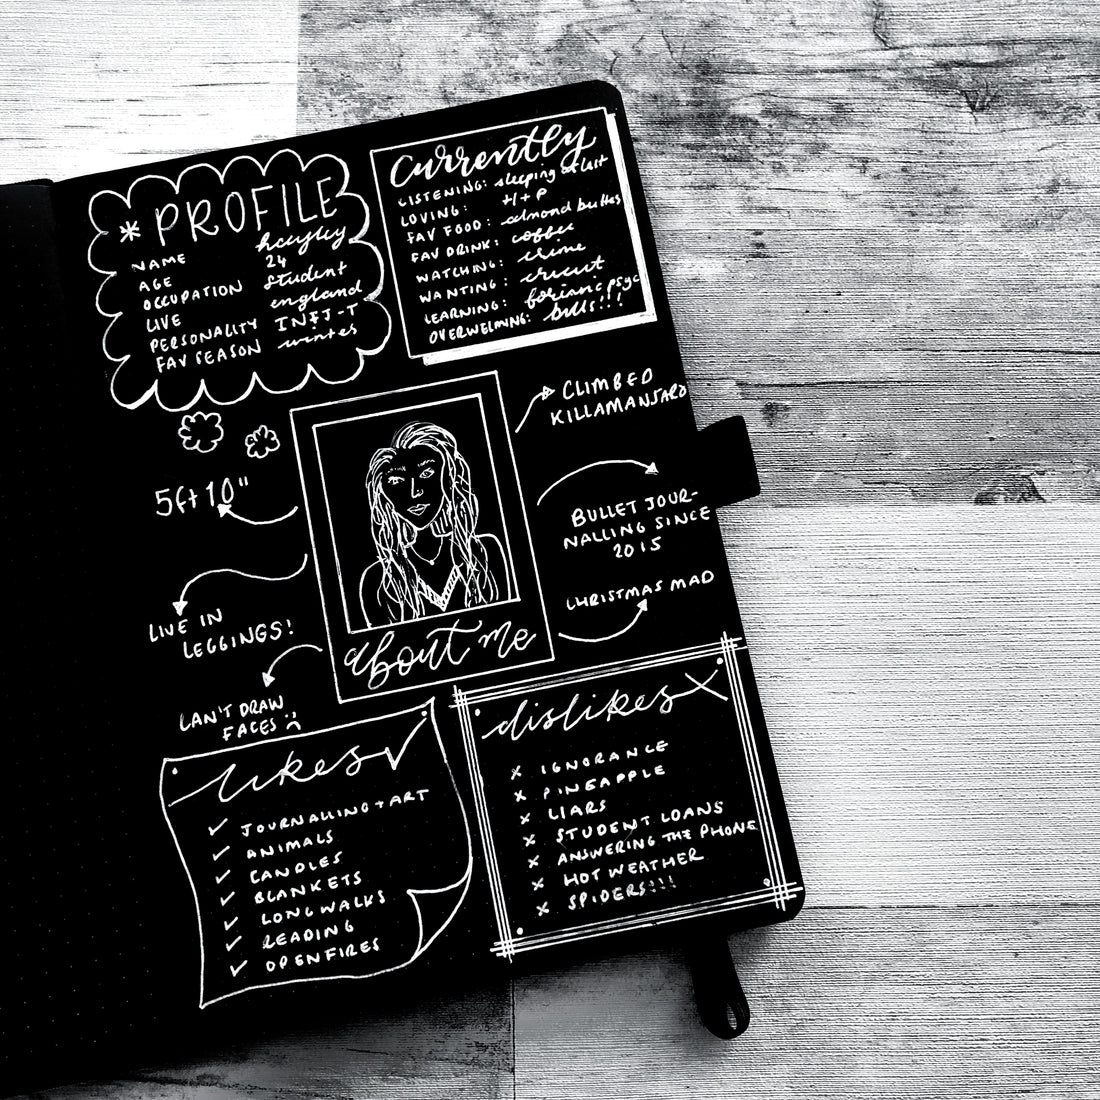 * PROFILE
NAME hayley
AGE 24
OCCUPATION student
LIVE england
PERSONALITY INFJ-T
FAV SEASON winter
currently
LISTENING: sleeping at last
LOVING: H+P
FAV FOOD: almond buttes
FAV DRINK: coffee
WATCHING: crime
WANTING: cricut
LEARNING: forianc psyc
OVERWELMNG: bills!!!
CLIMBED
KILLAMANJARO
5ft 10"
BULLET JOUR-
NALLING SINCE
2015
LIVE IN
LEGGINGS!
CHRISTMAS MAD
about me
CAN'T DRAW
FACES :(
likes ✓
✓ JOURNALLING + ART
✓ ANIMALS
✓ CANDLES
✓ BLANKETS
✓ LONG WALKS
✓ READING
✓ OPENFIRES
dislikes X
x IGNORANCE
x PINEAPPLE
x LIARS
x STUDENT LOANS
x ANSWERING THE PHONE
x HOT WEATHER
x SPIDERS!!!